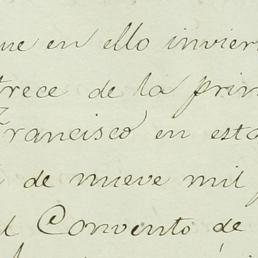 que en ello invier
trece de la prim
Francisco en esta
de nueve mil
el Convento de